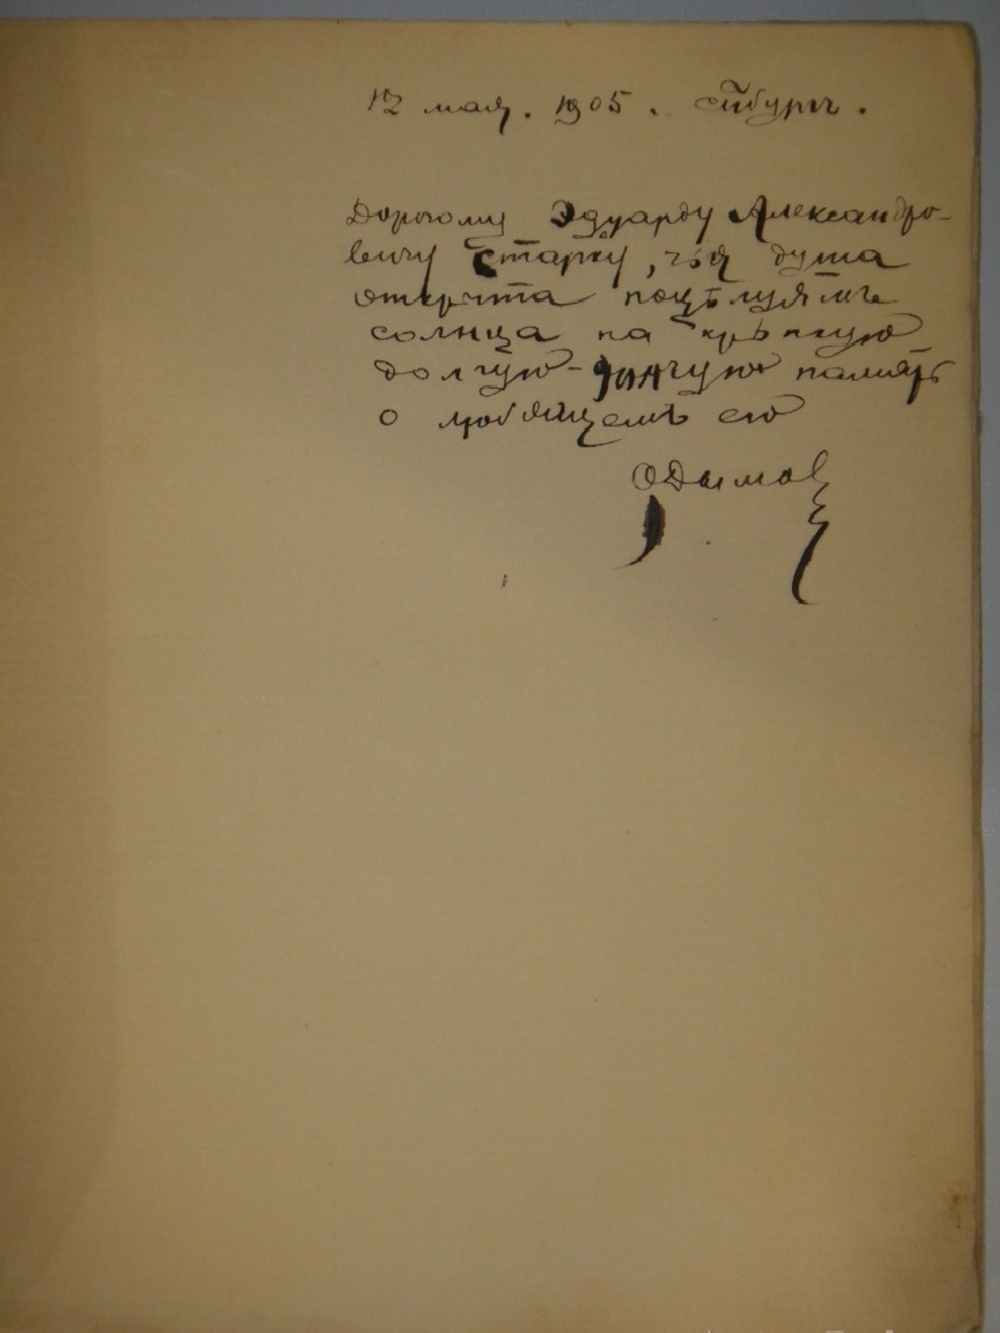 12 мая. 1905. СПбургъ.
Дорогому Эдуарду Александро-
вичу Старку, чья душа
открыта поцѣлуямъ
солнца на крѣпкую
долгую-долгую память
о любящемъ его
ОДымов